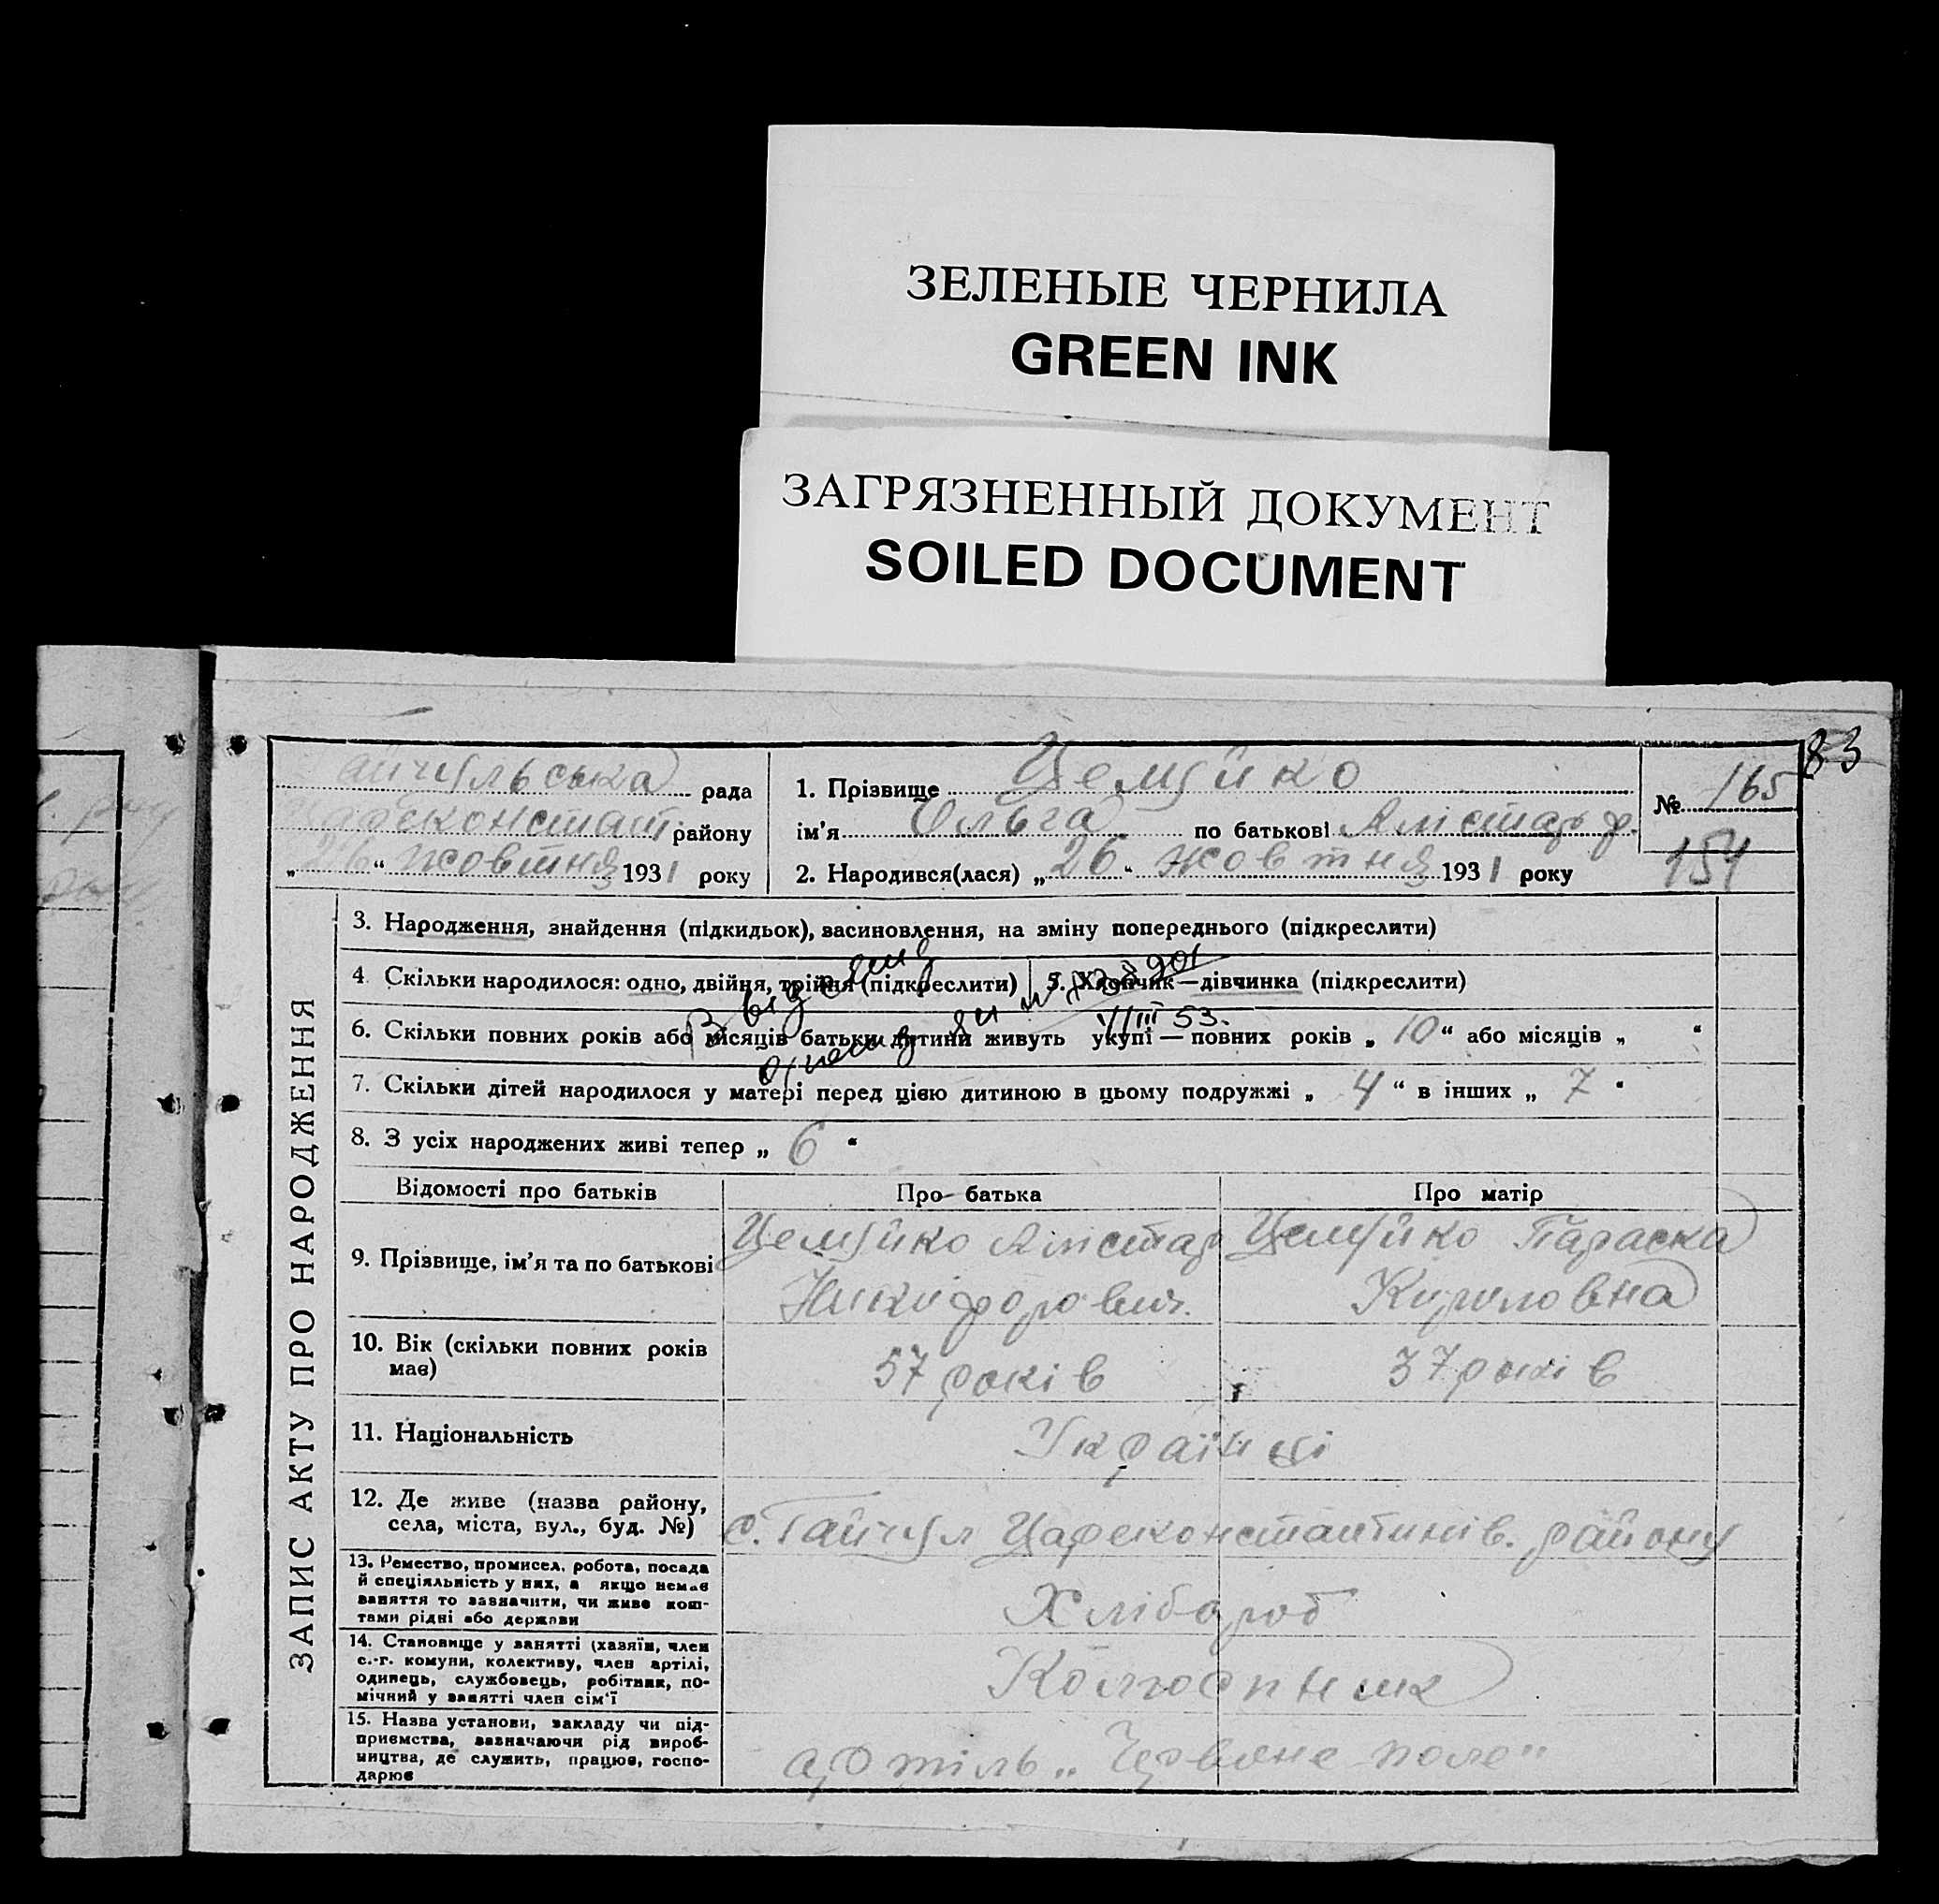 ЗЕЛЕНЫЕ ЧЕРНИЛА
GREEN INK
ЗАГРЯЗНЕННЫЙ ДОКУМЕНТ
SOILED DOCUMENT
83
айчульська рада
района
1931 року
„26“ жовтня
1. Прізвище Цемуйко
ім'я Ольга по батькові Алістар ф.
2. Народився(лася) „26“ жовтня 1931 року
№ 165
154
ЗАПИС АКТУ ПРО НАРОДЖЕННЯ
3. Народження, знайдення (підкидьок), засиновлення, на зміну попереднього (підкреслити)
4. Скільки народилося: одно, двійня, трійня (підкреслити)
5. Хлопчик—дівчинка (підкреслити)
6. Скільки повних років або місяців батьки дитини живуть укупі — повних років „10“ або місяців „ “
VIII 53.
7. Скільки дітей народилося у матері перед цією дитиною в цьому подружжі „4“ в інших „7“
8. З усіх народжених живі тепер „6“
Відомості про батьків Про батька Про матір
9. Прізвище, ім'я та по батькові
Цемуйко Алістар
Никифорович.
Цемуйко Параска
Кириловна
10. Вік (скільки повних років має)
57 років
37 років
11. Національність
Українці
12. Де живе (назва району,
села, міста, вул., буд. №)
с. Гайчул Цареконстантинів. району
13. Ремество, промисел, робота, посада
й спеціяльність у них, а якщо немає
заняття то зазначити, чи живе кош-
тами рідні або держави
Хлібороб
14. Становище у занятті (хазяїн, член
с.-г. комуни, колективу, член артілі,
одинець, службовець, робітник, по-
мічний у занятті член сім'ї
Колгоспник
15. Назва установи, закладу чи під-
приємства, зазначаючи рід вироб-
ництва, де служить, працює, госпо-
дарює
артіль „Червоне поле“